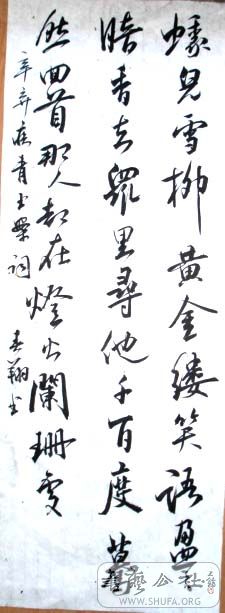 蛾兒雪柳黃金縷笑語盈
暗香去眾里尋他千百度驀
然回首那人却在燈火闌珊處
辛弃疾青玉案詞 春翔书
公社
WWW.SHUFA.ORG